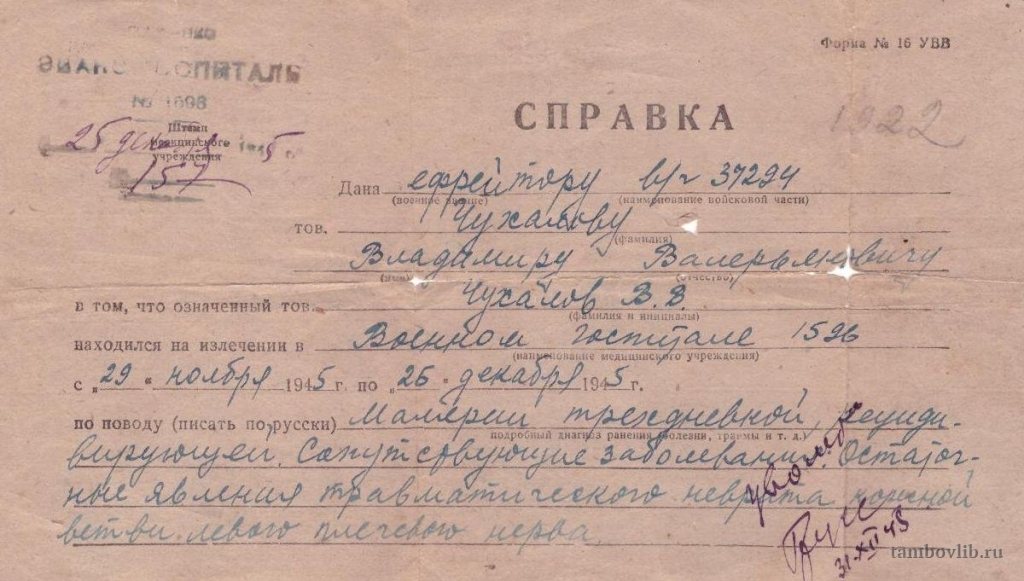 Форма № 16 УВВ
ЭВАКОГОСПИТАЛЬ
№ 1696
25 декабря 1945
Штамп
медицинского
учреждения
157
СПРАВКА
1922
Дана ефрейтору в/ч 37294
(военное звание) (наименование войсковой части)
тов. Чухалову
(фамилия)
Владимиру Валерьяновичу
(имя) (отчество)
в том, что означенный тов. Чухалов В. В
(фамилия и инициалы)
находился на излечении в Военном госпитале 1596
(наименование медицинского учреждения)
с „29" ноября 1945 г. по „26" декабря 1945 г.
по поводу (писать по-русски) Малярии трехдневной, рециди-
подробный диагноз ранения (болезни, травмы и т. д.)
вирующей. Сопутствующие заболевания: Остаточ-
ные явления травматического неврита кожной
ветви левого плечевого нерва.
31.XII 45
tambovlib.ru